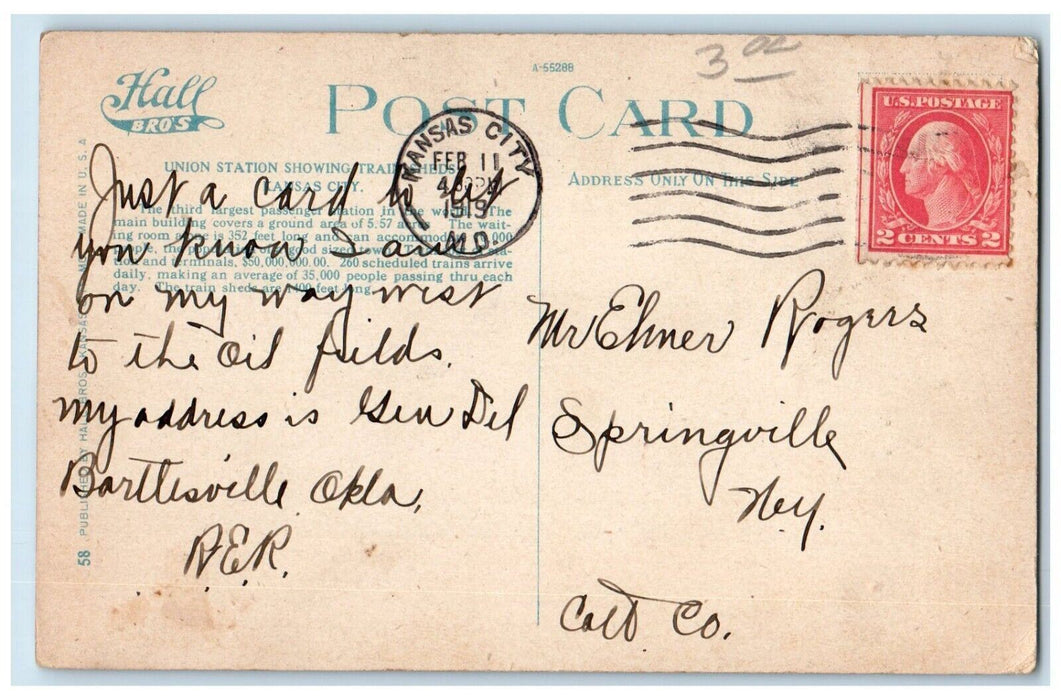 Hall
BRO'S
A-55288
3 00
POST CARD
UNION STATION SHOWING TRAIN SHEDS
KANSAS CITY.
The third largest passenger station in the world. The
main building covers a ground area of 5.57 The wait-
ing room is 352 feet long and can accommodate
$50,000,000.00. 260 scheduled trains arrive
daily, making an average of 35,000 people passing thru each
day. The train sheds are 1400 feet long.
KANSAS CITY
FEB 11
4 PM
1919
MO.
ADDRESS ONLY ON THIS SIDE
U.S. POSTAGE
2 CENTS 2
Just a card to let
you know I am
on my way west
to the oil feilds.
my address is Gen Del
Barttlesville Okla,
R.E.R.
Mr Elmer Rogers
Springville
N.Y.
Catt Co.
58 PUBLISHED BY HALL BROS. KANSAS MADE IN U.S.A